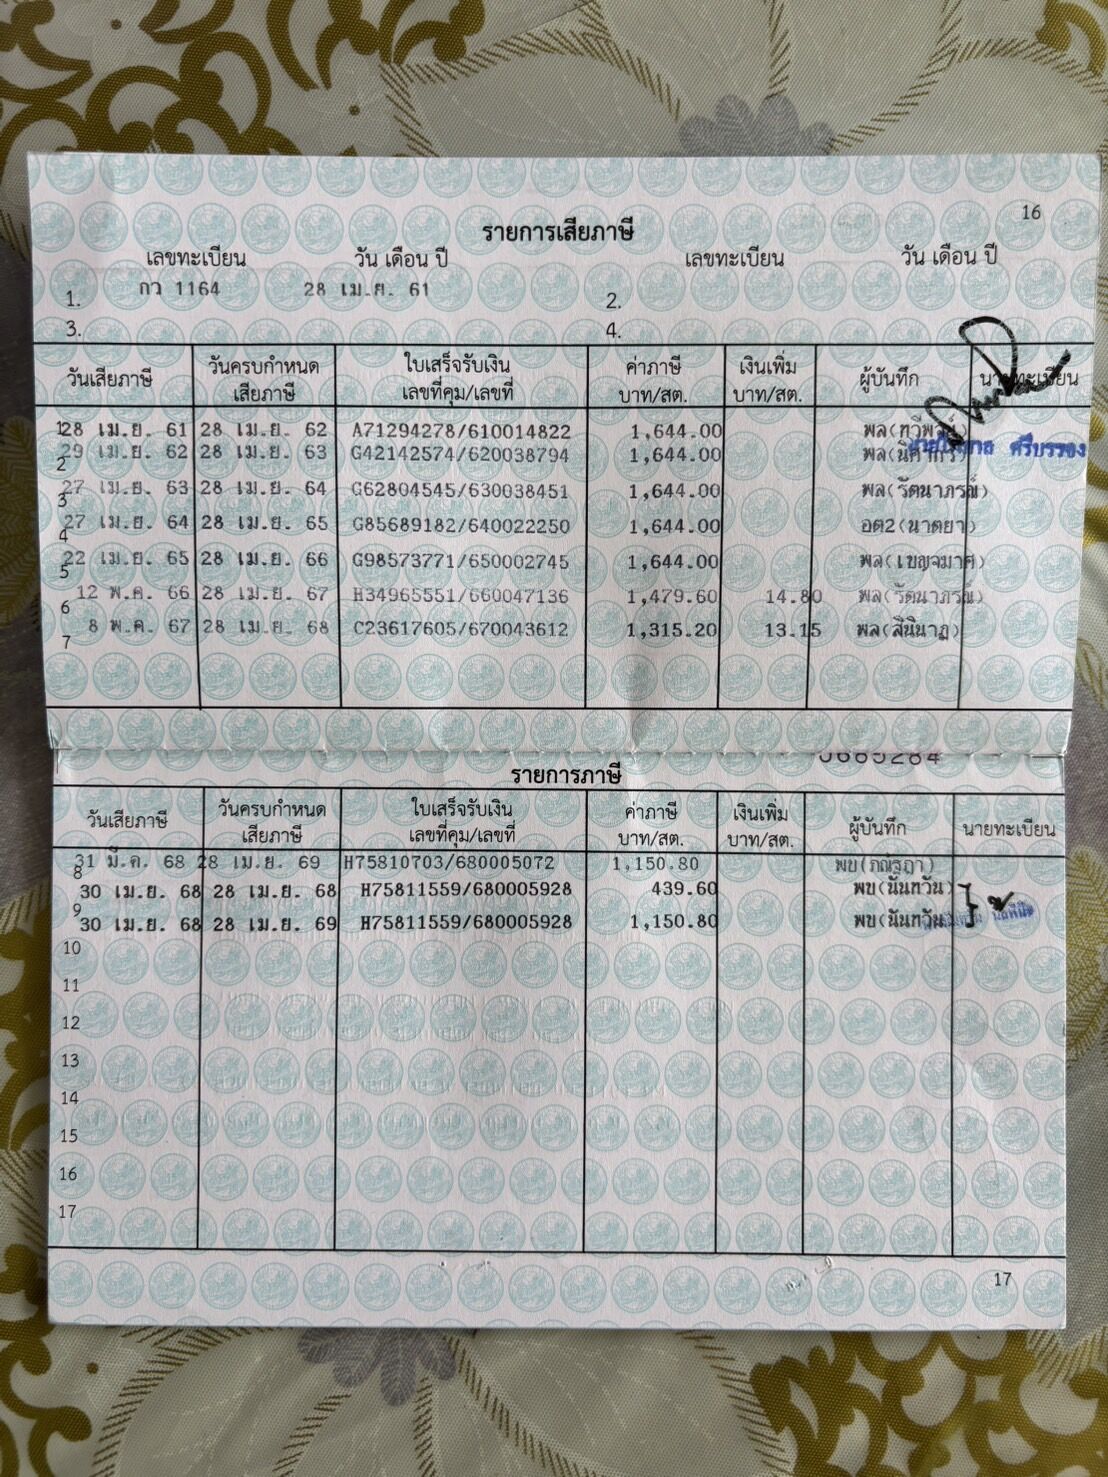 16
รายการเสียภาษี
เลขทะเบียน วัน เดือน ปี เลขทะเบียน วัน เดือน ปี
1. กว 1164 28 เม.ย. 61 2.
3. 4.
วันเสียภาษี วันครบกำหนดเสียภาษี ใบเสร็จรับเงิน เลขที่คุม/เลขที่ ค่าภาษี บาท/สต. เงินเพิ่ม บาท/สต. ผู้บันทึก นายทะเบียน
1 28 เม.ย. 61 28 เม.ย. 62 A71294278/610014822 1,644.00
2 29 เม.ย. 62 28 เม.ย. 63 G42142574/620038794 1,644.00
3 27 เม.ย. 63 28 เม.ย. 64 G62804545/630038451 1,644.00 พล(รัตนาภรณ์)
4 27 เม.ย. 64 28 เม.ย. 65 G85689182/640022250 1,644.00 อต2(นาตยา)
5 22 เม.ย. 65 28 เม.ย. 66 G98573771/650002745 1,644.00 พล(เบญจมาศ)
6 12 พ.ค. 66 28 เม.ย. 67 H34965551/660047136 1,479.60 14.80 พล(รัตนาภรณ์)
7 8 พ.ค. 67 28 เม.ย. 68 C23617605/670043612 1,315.20 13.15 พล(สินินาฏ)
รายการภาษี
วันเสียภาษี วันครบกำหนดเสียภาษี ใบเสร็จรับเงิน เลขที่คุม/เลขที่ ค่าภาษี บาท/สต. เงินเพิ่ม บาท/สต. ผู้บันทึก นายทะเบียน
8 31 มี.ค. 68 28 เม.ย. 69 H75810703/680005072 1,150.80
30 เม.ย. 68 28 เม.ย. 68 H75811559/680005928 439.60 พบ(นันทวัน)
9 30 เม.ย. 68 28 เม.ย. 69 H75811559/680005928 1,150.80 พบ(นันทวัน)
10
11
12
13
14
15
16
17
17